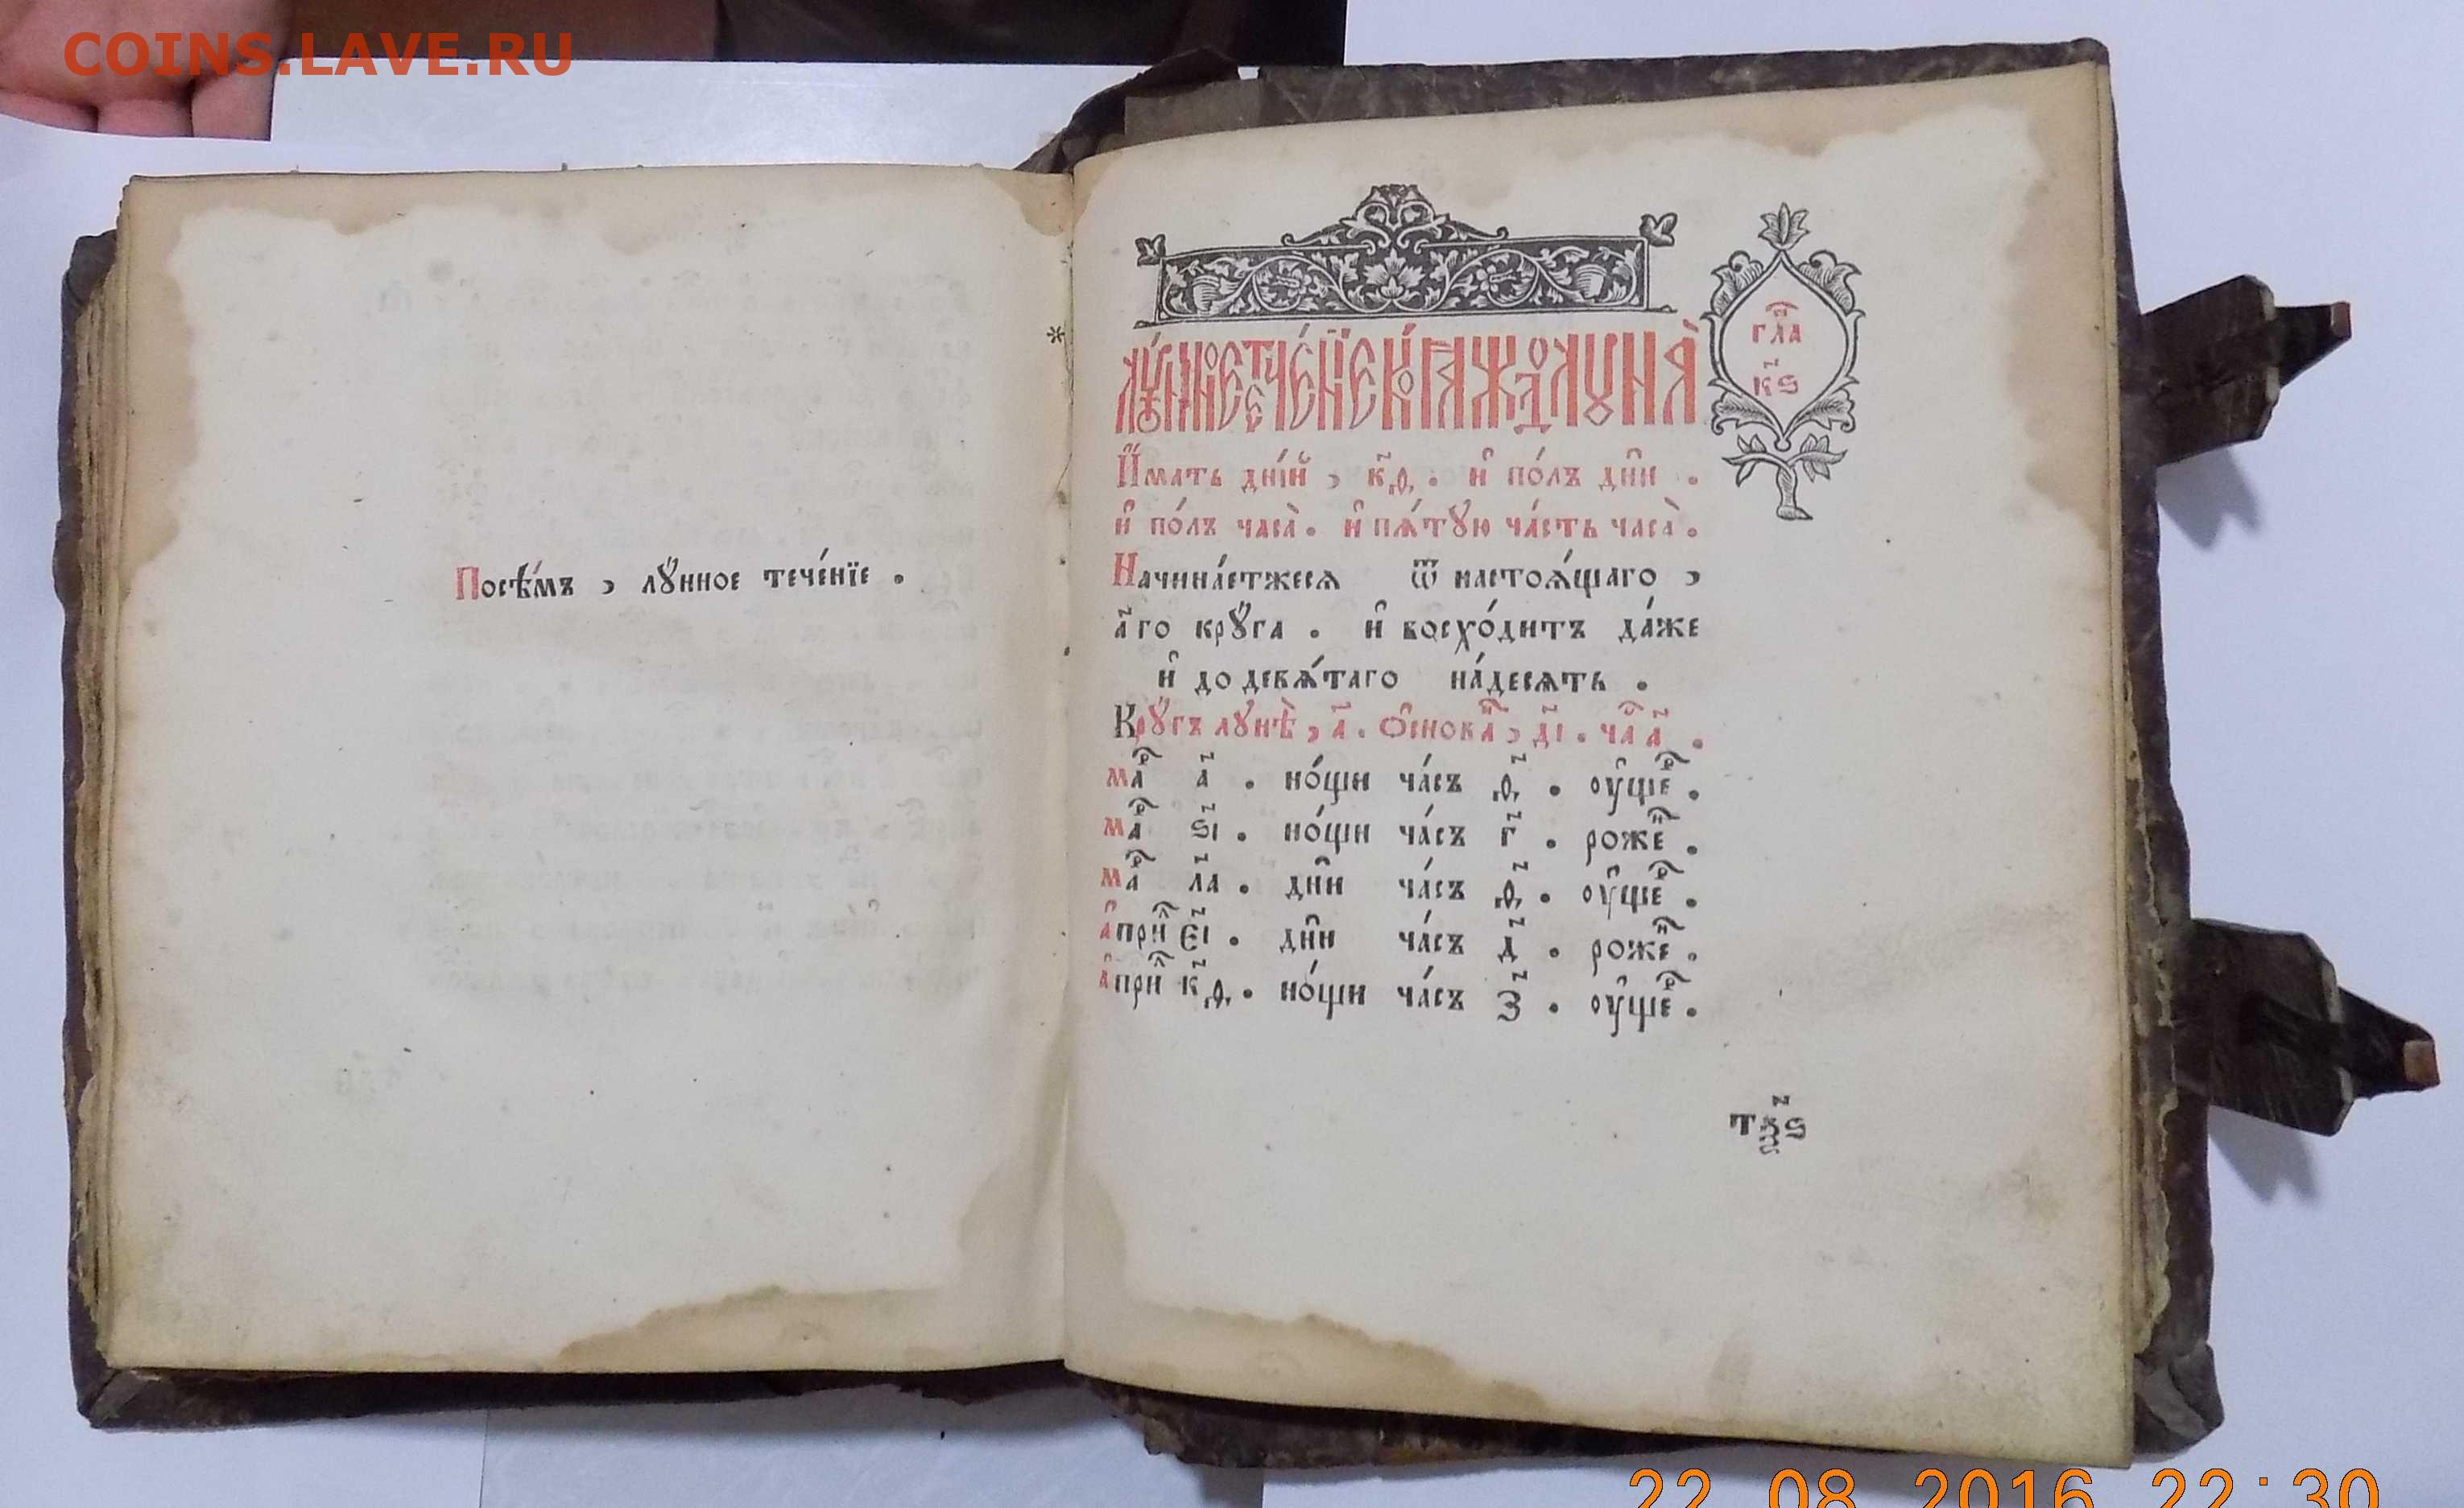 COINS.LAVE.RU
Посѣ́мъ , лꙋ́нное тече́нїе .
лꙋ́нное тече́нїе коѧ́ждо лꙋна̀
гла
к҃ѕ
И҆́мать дні́й , к҃ѳ . и҆ по́лъ дни̑ .
и҆ по́лъ часа̀ . и҆ пѧ́тꙋю ча́сть часа̀ .
Начина́етжесѧ ѿ настоѧ́щаго ,
а҃го крꙋ́га . и҆ восхо́дитъ да́же
и҆ до девѧ́таго на́десѧть .
Крꙋ́гъ лꙋнѣ̀ , а҃ . Ѻ҆снова́ , д҃і . ча а҃ .
ма а҃ . но́щи ча́съ ѳ҃ . ᲂу҆ще .
ма ѕ҃і . но́щи ча́съ г҃ . роже .
ма л҃а . дни̑ ча́съ ѳ҃ . ᲂу҆ще .
а҆при е҃і . дни̑ ча́съ д҃ . роже .
а҆при к҃ѳ . но́щи ча́съ з҃ . ᲂу҆ще .
т҃ѯѕ
22.08.2016 22:30